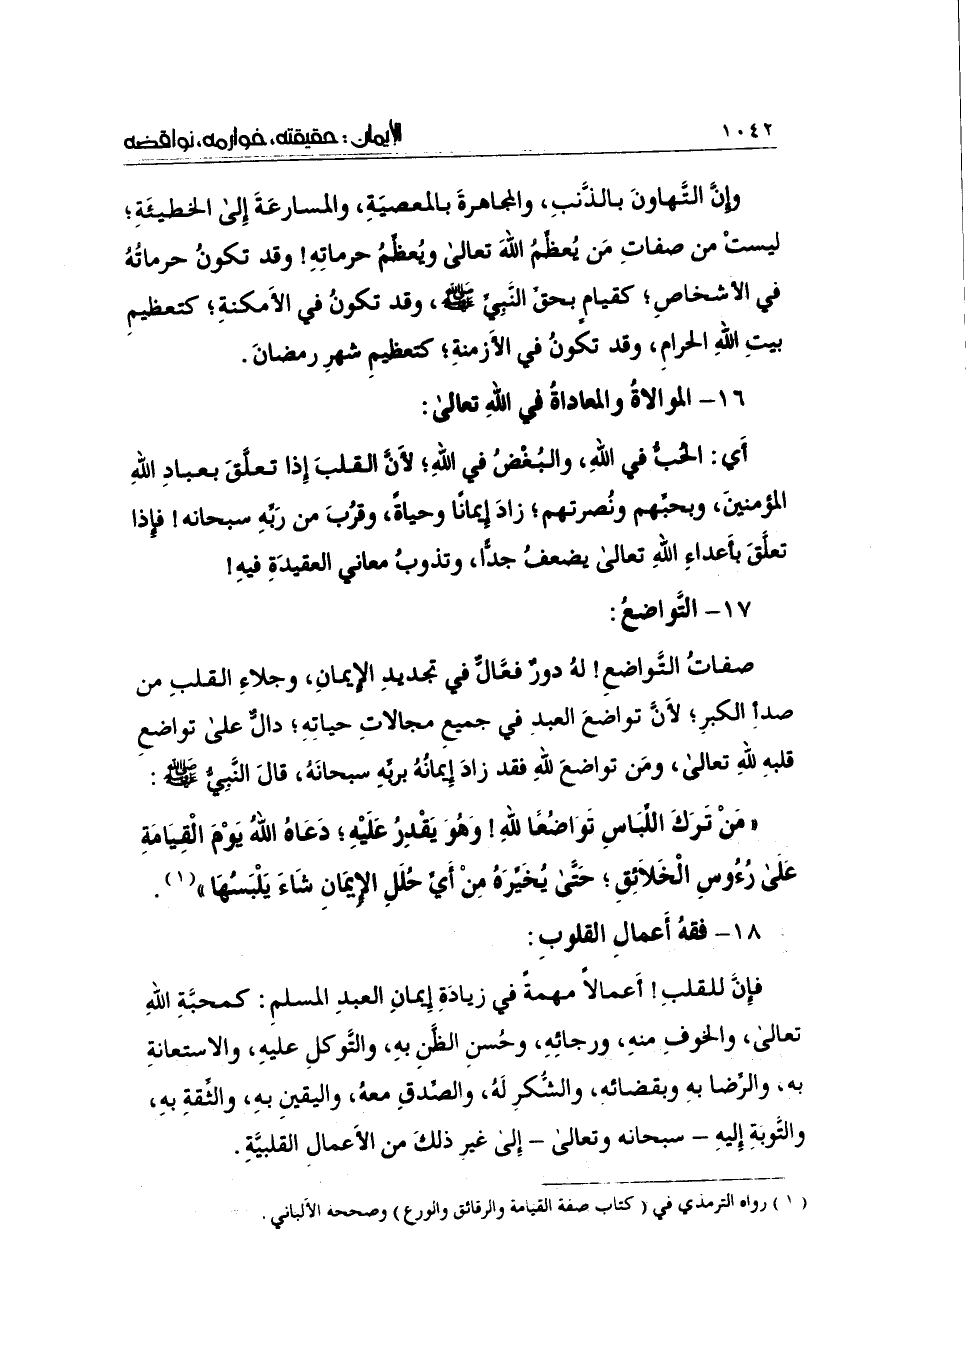 ١٠٤٢
الإيمان: حقيقته، خوارمه، نواقضه
وإنَّ التَّهاونَ بـالذَّنبِ، والمجاهرةَ بـالمعصيَةِ، والمسارعَةَ إلىٰ الخطيئَةِ؛
ليستْ من صفاتِ مَن يُعظِّمُ اللهَ تعالىٰ ويُعظِّمُ حرماتِهِ! وقد تكونُ حرماتُهُ
في الأشخاصِ؛ كقيامٍ بحقِّ النَّبيِّ ﷺ، وقد تكونُ في الأمكنةِ؛ كتعظيمِ
بيتِ اللهِ الحرامِ، وقد تكونُ في الأزمنةِ؛ كتعظيمِ شهرِ رمضانَ.
١٦- الموالاةُ والمعاداةُ في اللهِ تعالىٰ:
أي: الحبُّ في اللهِ، والبُغْضُ في اللهِ؛ لأنَّ القـلبَ إذا تـعلَّقَ بـعبـادِ اللهِ
المؤمنينَ، وبحبِّهم ونُصرتهم؛ زادَ إيمانًا وحياةً، وقرُبَ من ربِّهِ سبحانه! فإذا
تعلَّقَ بأعداءِ اللهِ تعالىٰ يضعفُ جدًّا، وتذوبُ معاني العقيدَةِ فيهِ!
١٧- التَّواضعُ:
صفاتُ التَّواضعِ! لهُ دورٌ فعَّالٌ في تجديدِ الإيمانِ، وجلاءِ القـلبِ من
صدأِ الكبرِ؛ لأنَّ تواضعَ العبدِ في جميعِ مجالاتِ حياتِهِ؛ دالٌّ علىٰ تواضعِ
قلبهِ للهِ تعالىٰ، ومَن تواضعَ للهِ فقد زادَ إيمانُهُ بربِّهِ سبحانَهُ، قالَ النَّبيُّ ﷺ:
«مَنْ تَرَكَ اللِّبَاسِ تَوَاضُعًا للهِ! وَهُوَ يَقْدِرُ عَلَيْهِ؛ دَعَاهُ اللهُ يَوْمَ الْقِيَامَةِ
عَلَىٰ رُءُوسِ الْخَلَائِقِ؛ حَتَّىٰ يُخَيِّرَهُ مِنْ أَيِّ حُلَلِ الإِيمَانِ شَاءَ يَلْبَسُهَا»(١).
١٨- فقهُ أعمالِ القلوبِ:
فإنَّ للقـلبِ! أعمـالاً مهمةً في زيادَةِ إيمانِ العبدِ المسلمِ: كـمحبَّةِ اللهِ
تعالىٰ، والخوفِ منهِ، ورجائِهِ، وحُسنِ الظَّنِ بهِ، والتَّوكلِ عليهِ، والاستعانةِ
به، والرِّضا بهِ وبقضائه، والشُّكرِ لهُ، والصِّدقِ معهُ، واليقينِ بهِ، والثِّقةِ بهِ،
والتَّوبَةِ إليهِ – سبحانه وتعالىٰ – إلىٰ غيرِ ذلكَ من الأعمالِ القلبيَّةِ.
(١) رواه الترمذي في (كتاب صفة القيامة والرقائق والورع) وصححه الألباني.